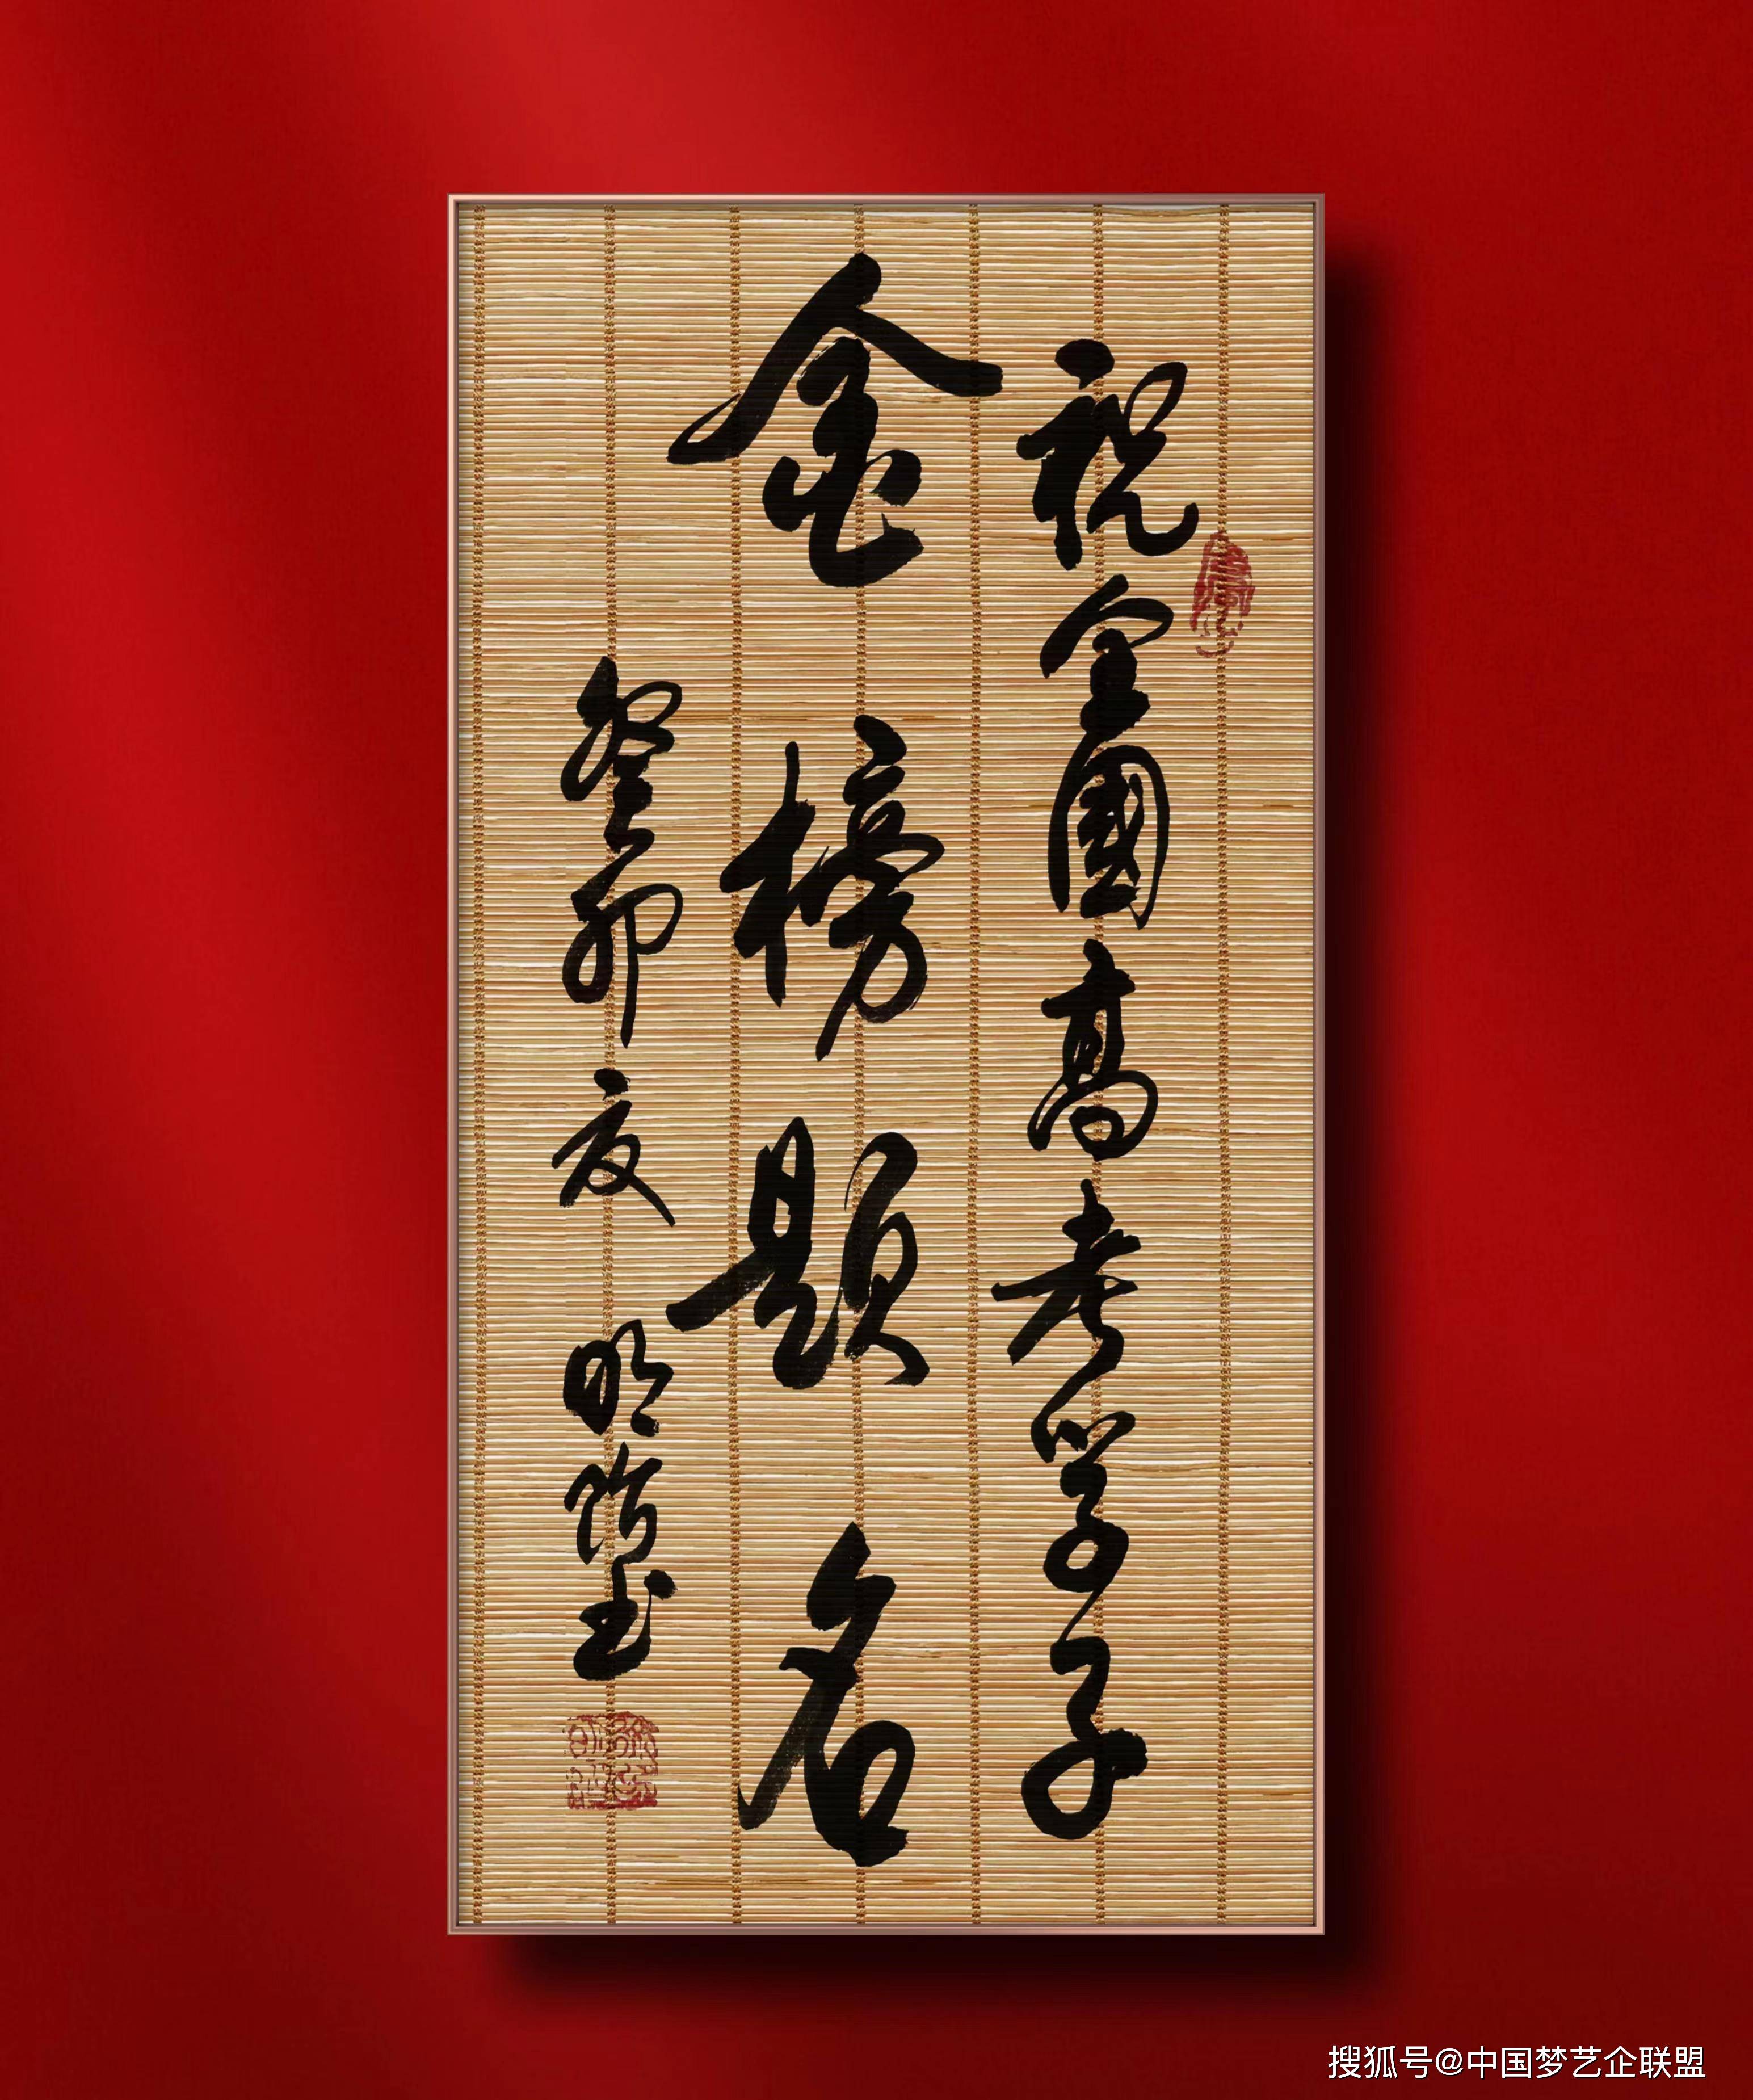 祝全國高考學子
金榜题名
癸卯夏明防书
搜狐号@中国梦艺企联盟